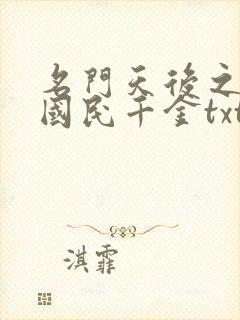 名門天後之
國民千金txt
淇霏